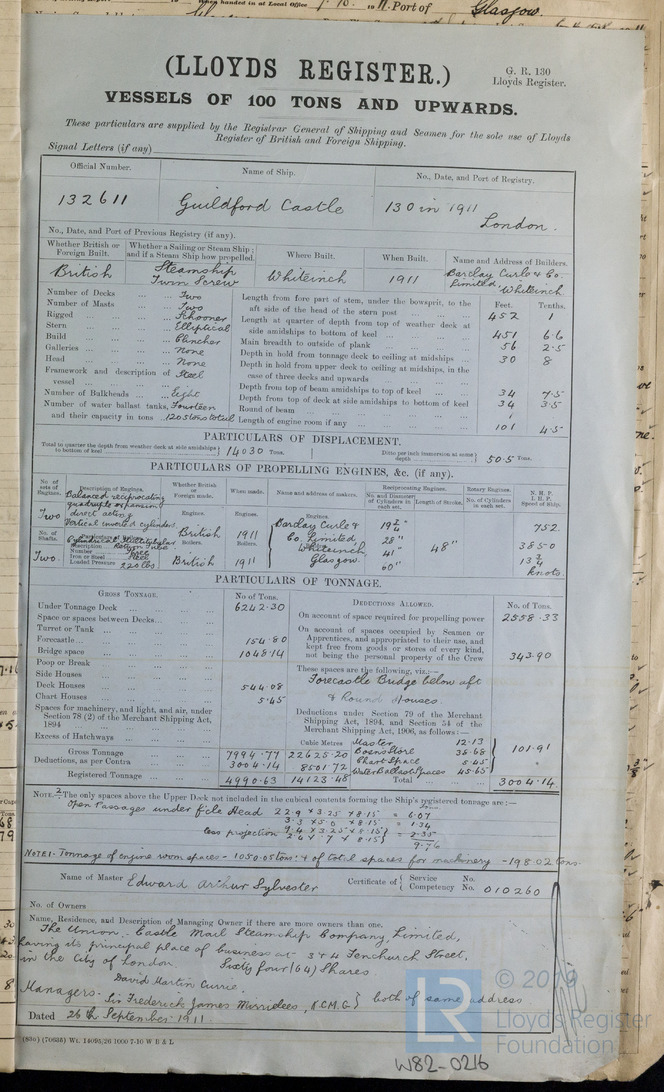 When handed in at Local Office 7.10.1911. Port of Glasgow.
(LLOYDS REGISTER.)
G. R. 130
Lloyds Register.
VESSELS OF 100 TONS AND UPWARDS.
These particulars are supplied by the Registrar General of Shipping and Seamen for the sole use of Lloyds
Register of British and Foreign Shipping.
Signal Letters (if any)
Official Number. Name of Ship. No., Date, and Port of Registry.
132611 Guildford Castle 130 in 1911
London.
No., Date, and Port of Previous Registry (if any).
Whether British or Foreign Built. Whether a Sailing or Steam Ship; and if a Steam Ship how propelled. Where Built. When Built. Name and Address of Builders.
British Steamship Twin Screw Whiteinch 1911 Barclay Curle & Co. Limited, Whiteinch.
Number of Decks ... Two
Number of Masts ... Two
Rigged ... Schooner
Stern ... Elliptical
Build ... Clencher
Galleries ... None
Head ... None
Framework and description of vessel ... Steel
Number of Bulkheads ... Eight
Number of water ballast tanks, Fourteen
and their capacity in tons ... 1205 tons total
Feet. Tenths.
Length from fore part of stem, under the bowsprit, to the aft side of the head of the stern post 452 1
Length at quarter of depth from top of weather deck at side amidships to bottom of keel 451 6.6
Main breadth to outside of plank 56 2.5
Depth in hold from tonnage deck to ceiling at midships 30 8
Depth in hold from upper deck to ceiling at midships, in the case of three decks and upwards
Depth from top of beam amidships to top of keel 34 7.5
Depth from top of deck at side amidships to bottom of keel 34 3.5
Round of beam 1
Length of engine room if any 101 4.5
PARTICULARS OF DISPLACEMENT.
Total to quarter the depth from weather deck at side amidships to bottom of keel } 14030 Tons. Ditto per inch immersion at same depth } 50.5 Tons.
PARTICULARS OF PROPELLING ENGINES, &c. (if any).
No. of sets of Engines. Description of Engines. Whether British or Foreign made. When made. Name and address of makers. Reciprocating Engines. No. and Diameter of Cylinders in each set. Length of Stroke. Rotary Engines. No. of Cylinders in each set. N. H. P. I. H. P. Speed of Ship.
Two Balanced reciprocating quadruple expansion direct acting Vertical inverted cylinders.
Engines. British Engines. 1911
Engines. Barclay Curle & Co Limited Whiteinch Glasgow.
28" 41" 60" 48"
752.
3850
knots.
No. of Shafts. Two.
Description
Number Three
Iron or Steel Steel
Loaded Pressure 220 lbs.
Boilers. British Boilers. 1911
PARTICULARS OF TONNAGE.
GROSS TONNAGE. No of Tons. DEDUCTIONS ALLOWED. No. of Tons.
Under Tonnage Deck 6242.30
Space or spaces between Decks
Turret or Tank
Forecastle 154.80
Bridge space 1048.14
Poop or Break
Side Houses
Deck Houses 544.08
Chart Houses 5.45
Spaces for machinery, and light, and air, under
Section 78 (2) of the Merchant Shipping Act,
1894
Excess of Hatchways
Gross Tonnage 7994.77 22625.20
Deductions, as per Contra 3004.14 8501.72
Registered Tonnage 4990.63 14123.48
On account of space required for propelling power 2558.33
On account of spaces occupied by Seamen or
Apprentices, and appropriated to their use, and
kept free from goods or stores of every kind,
not being the personal property of the Crew 343.90
These spaces are the following, viz.:—
Forecastle Bridge below aft
& Round Houses.
Deductions under Section 79 of the Merchant
Shipping Act, 1894, and Section 54 of the
Merchant Shipping Act, 1906, as follows:—
Cubic Metres Master 12.13
Boens Store 38.68
Chart Space 5.45
Water Ballast Spaces 45.65
101.91
Total 3004.14.
NOTE.—The only spaces above the Upper Deck not included in the cubical contents forming the Ship's registered tonnage are:—
Open Passages under f'cle Head 22.9 × 3.25 × 8.15 = 6.07
3.3 × 5.0 × 8.15 = 1.34
less projection = 2.35
9.76
NOTE 1. Tonnage of engine room spaces - 1050.05 tons: & of total spaces for machinery - 198.02 tons.
Name of Master Edward Arthur Sylvester Certificate of { Service No. Competency No. 010260
No. of Owners
Name, Residence, and Description of Managing Owner if there are more owners than one.
The Union-Castle Mail Steamship Company, Limited,
having its principal place of business at 3 & 4 Fenchurch Street,
in the City of London Sixty four (64) Shares
Managers. David Martin Currie
Sir Frederick James Mirrielees, K.C.M.G. } both of same address
Dated 26th September 1911
(830) (70635) Wt. 14093/26 1000 7-10 W B & L
W82-0216
© 2019
LR
Lloyd's Register
Foundation